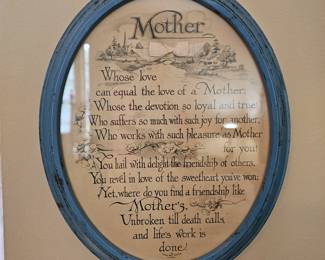 Mother
Whose love
can equal the love of a Mother;
Whose the devotion so loyal and true;
Who suffers so much with such joy for another,
Who works with such pleasure as Mother
for you?
You hail with delight the friendship of others,
You revel in love of the sweetheart you've won;
Yet, where do you find a friendship like
Mother's,
Unbroken till death calls,
and life's work is
done!